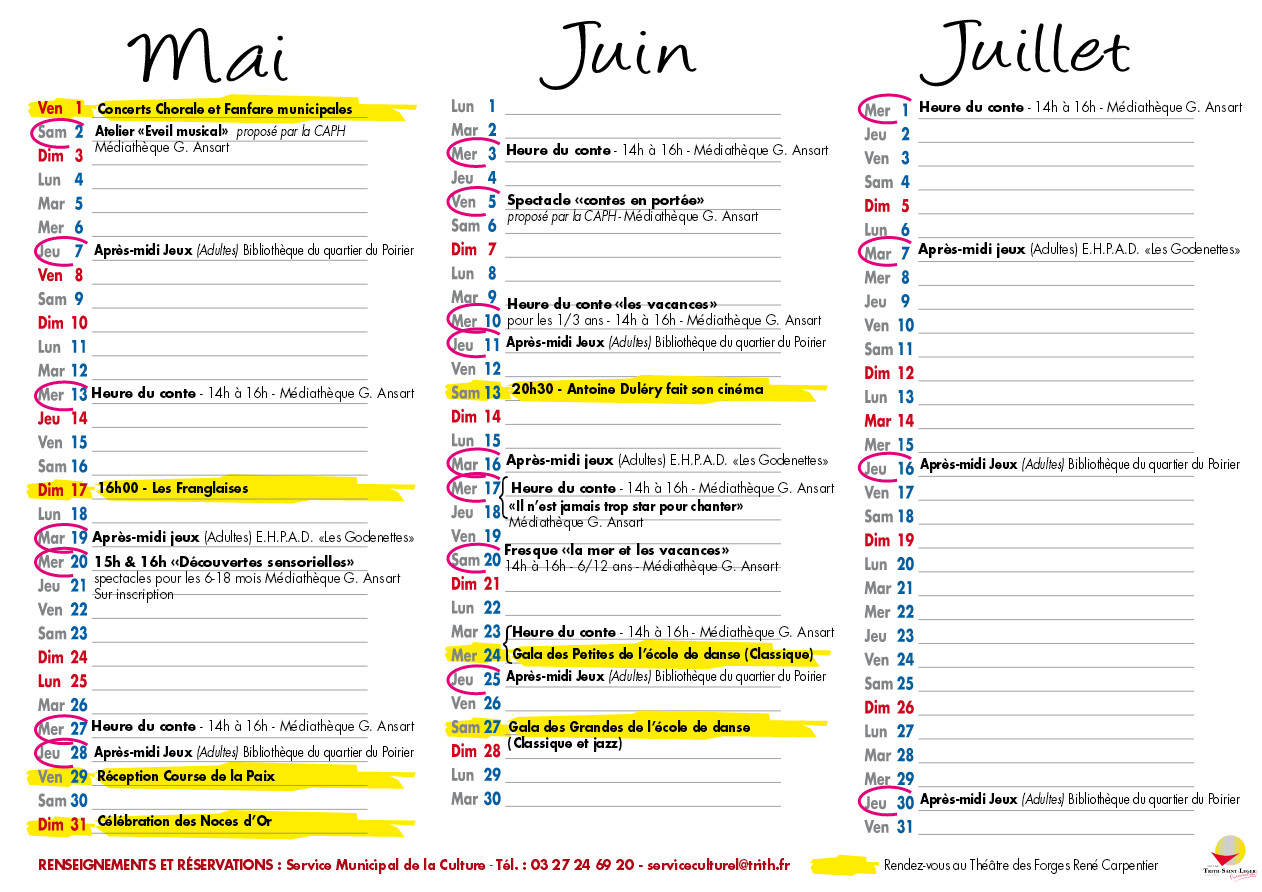 Mai
Ven 1 Concerts Chorale et Fanfare municipales
Sam 2 Atelier «Eveil musical» proposé par la CAPH
Médiathèque G. Ansart
Dim 3
Lun 4
Mar 5
Mer 6
Jeu 7 Après-midi Jeux (Adultes) Bibliothèque du quartier du Poirier
Ven 8
Sam 9
Dim 10
Lun 11
Mar 12
Mer 13 Heure du conte - 14h à 16h - Médiathèque G. Ansart
Jeu 14
Ven 15
Sam 16
Dim 17 16h00 - Les Franglaises
Lun 18
Mar 19 Après-midi jeux (Adultes) E.H.P.A.D. «Les Godenettes»
Mer 20 15h & 16h «Découvertes sensorielles»
spectacles pour les 6-18 mois Médiathèque G. Ansart
Jeu 21
Sur inscription
Ven 22
Sam 23
Dim 24
Lun 25
Mar 26
Mer 27 Heure du conte - 14h à 16h - Médiathèque G. Ansart
Jeu 28 Après-midi Jeux (Adultes) Bibliothèque du quartier du Poirier
Ven 29 Réception Course de la Paix
Sam 30
Dim 31 Célébration des Noces d'Or
Juin
Lun 1
Mar 2
Mer 3 Heure du conte - 14h à 16h - Médiathèque G. Ansart
Jeu 4
Ven 5 Spectacle «contes en portée»
proposé par la CAPH - Médiathèque G. Ansart
Sam 6
Dim 7
Lun 8
Mar 9
Heure du conte «les vacances»
Mer 10 pour les 1/3 ans - 14h à 16h - Médiathèque G. Ansart
Jeu 11 Après-midi Jeux (Adultes) Bibliothèque du quartier du Poirier
Ven 12
Sam 13 20h30 - Antoine Duléry fait son cinéma
Dim 14
Lun 15
Mar 16 Après-midi jeux (Adultes) E.H.P.A.D. «Les Godenettes»
Mer 17 Heure du conte - 14h à 16h - Médiathèque G. Ansart
Jeu 18 «Il n'est jamais trop star pour chanter»
Médiathèque G. Ansart
Ven 19
Sam 20 Fresque «la mer et les vacances»
14h à 16h - 6/12 ans - Médiathèque G. Ansart
Dim 21
Lun 22
Mar 23 Heure du conte - 14h à 16h - Médiathèque G. Ansart
Mer 24 Gala des Petites de l'école de danse (Classique)
Jeu 25 Après-midi Jeux (Adultes) Bibliothèque du quartier du Poirier
Ven 26
Sam 27 Gala des Grandes de l'école de danse
(Classique et jazz)
Dim 28
Lun 29
Mar 30
Juillet
Mer 1 Heure du conte - 14h à 16h - Médiathèque G. Ansart
Jeu 2
Ven 3
Sam 4
Dim 5
Lun 6
Mar 7 Après-midi jeux (Adultes) E.H.P.A.D. «Les Godenettes»
Mer 8
Jeu 9
Ven 10
Sam 11
Dim 12
Lun 13
Mar 14
Mer 15
Jeu 16 Après-midi Jeux (Adultes) Bibliothèque du quartier du Poirier
Ven 17
Sam 18
Dim 19
Lun 20
Mar 21
Mer 22
Jeu 23
Ven 24
Sam 25
Dim 26
Lun 27
Mar 28
Mer 29
Jeu 30 Après-midi Jeux (Adultes) Bibliothèque du quartier du Poirier
Ven 31
RENSEIGNEMENTS ET RÉSERVATIONS : Service Municipal de la Culture - Tél. : 03 27 24 69 20 - serviceculturel@trith.fr
Rendez-vous au Théâtre des Forges René Carpentier
TRITH-SAINT-LEGER